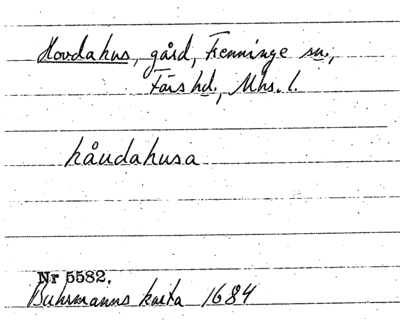 Hovdahus, gård, Fränninge sn.,
Färs hd., Mhs. l.
håudahusa
Nr 5582.
Buhrmanns karta 1684